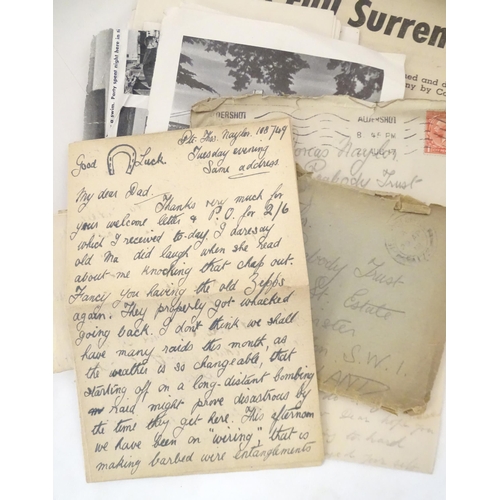 Full Surren
ned and a
ny by Co
Party spent night here in
ALDERSHOT
ALDERSHOT
8 PM
Thomas Naylor,
Peabody Trust
Peabody Trust
Estate
minster
S.W.1.
Pte. Thos. Naylor.
Good Luck
Tuesday evening
Same address
My dear Dad,
Thanks very much for
your welcome letter & P.O. for 2/6
which I received to-day. I daresay
old Ma did laugh when she read
about me knocking that chap out.
Fancy you having the old Zepps
again. They properly got whacked
going back. I don't think we shall
have many raids this month, as
the weather is so changeable, that
starting off on a long-distant bombing
raid might prove disastrous by
the time they get here. This afternoon
we have been on "wiring", that is
making barbed wire entanglements